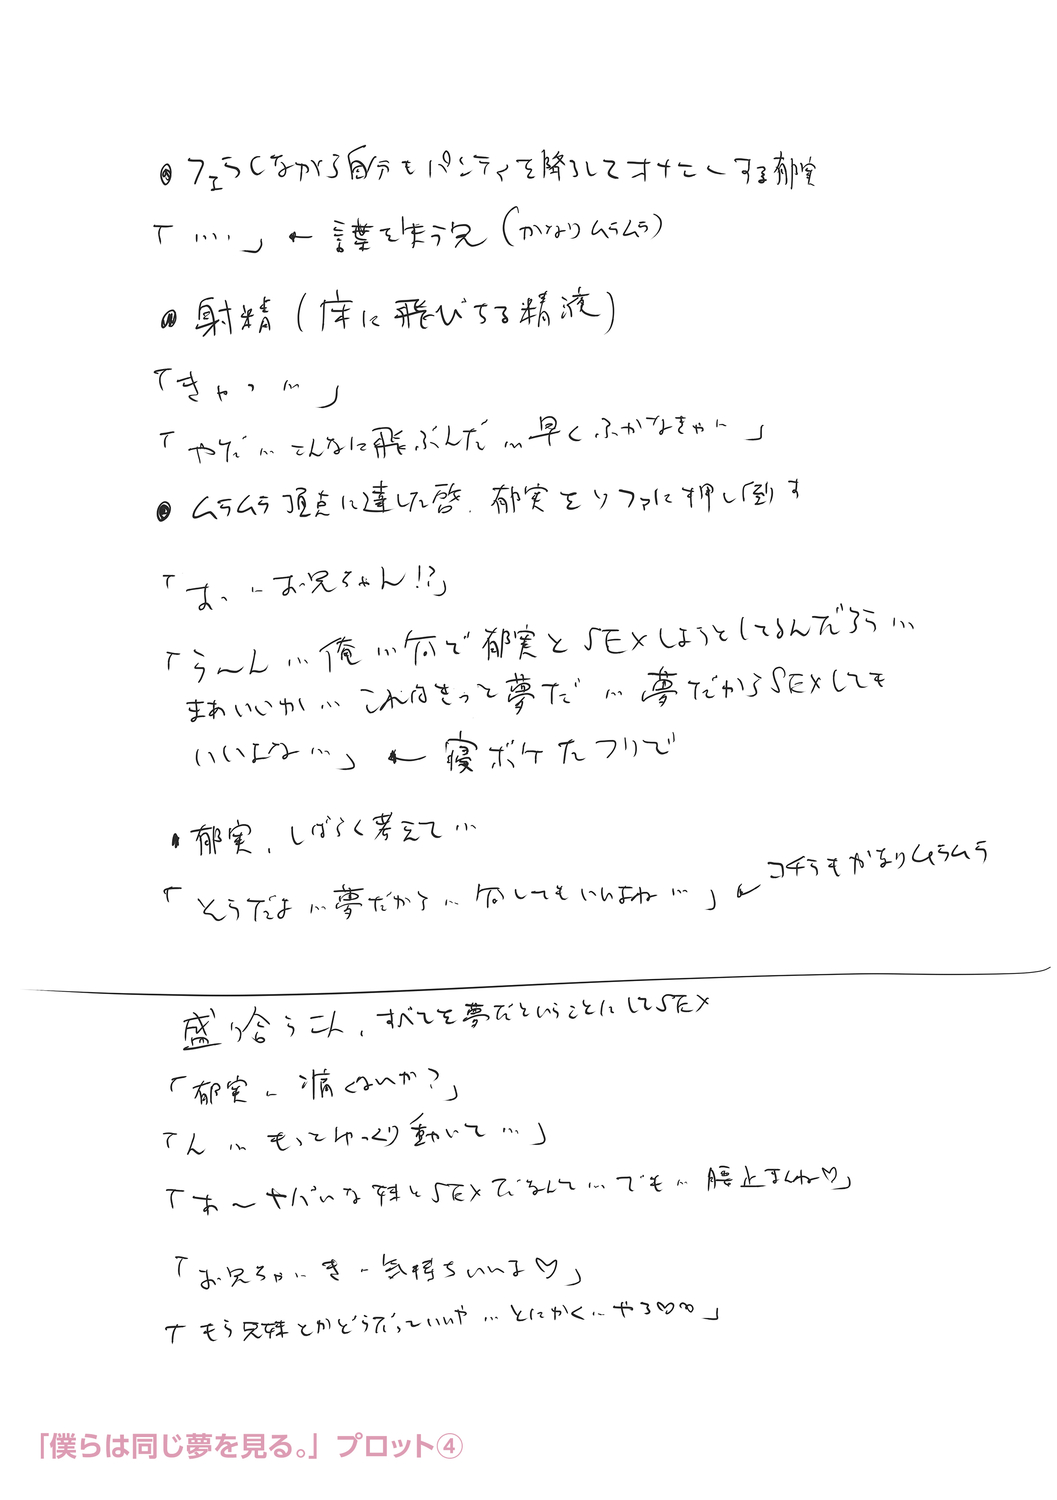 ●フェラしながら自分もパンティを降ろしてオナニーする郁実
「‥‥」←言葉を失う兄(かなりムラムラ)
●射精(床に飛びちる精液)
「きゃっ…」
「やだ…こんなに飛ぶんだ…早くふかなきゃ…」
●ムラムラ頂点に達した啓、郁実をソファに押し倒す
「あっ…お兄ちゃん!?」
「う~ん…俺…何で郁実とSEXしようとしてるんだろう…
まあいいか…これはきっと夢だ…夢だからSEXしても
いいよな…」←寝ボケたフリで
●郁実、しばらく考えて…
「そうだよ…夢だから…何してもいいよね…」←コチラもかなりムラムラ
盛り合う二人、すべてを夢だということにしてSEX
「郁実…痛くないか?」
「ん…もっとゆっくり動いて…」
「あ~ヤバいな妹とSEXだなんて…でも…腰止まんね♡」
「お兄ちゃ…き…気持ちいいよ♡」
「もう兄妹とかどうだっていいや…とにかく…やろ♡♡」
「僕らは同じ夢を見る。」プロット④